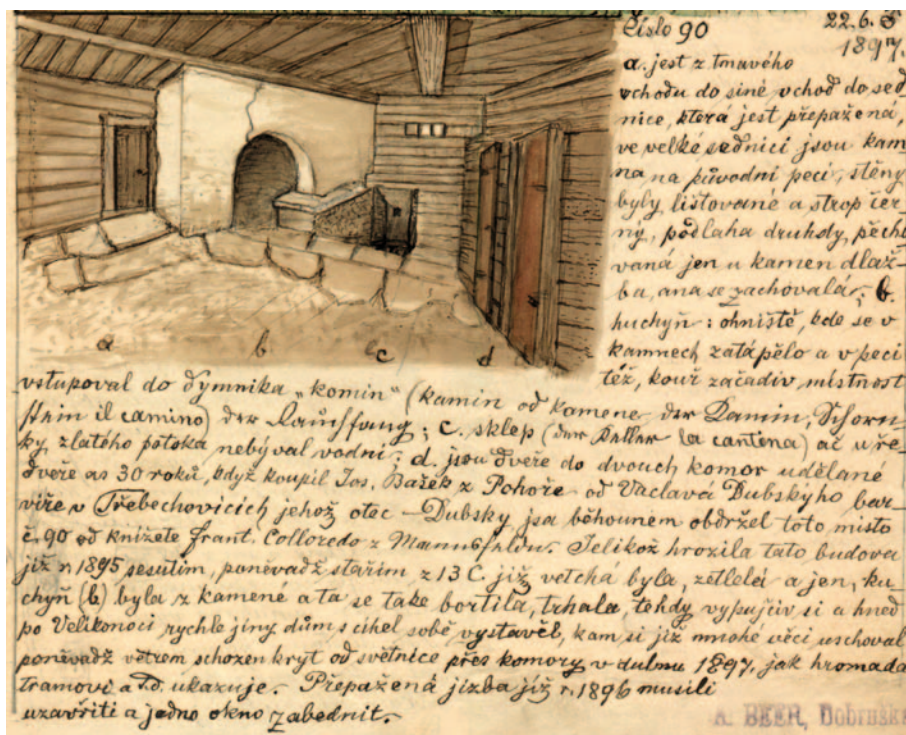 Číslo 90 22.6.
1897.
a. jest z tmavého
vchodu do síně vchod do sed
nice, která jest přepažená,
ve velké sednici jsou kam
na na původní peci, stěny
byly lištované a strop čer
ný, podlaha druhdy pěcho
vaná jen u kamen dlaž-
ba, ana se zachovala; b.
kuchyň: ohniště, kde se v
a b c d
kamnech zatápělo a v peci
též, kouř začadiv místnost
vstupoval do dymnika „komin" (kamin od kamene der Kamin, Schorn-
stein il camino) der Rauchfang; c. sklep (der Keller la cantina) ač u ře
ky, zlatého potoka nebýval vodní; d. jsou dveře do dvouch komor udělané
dveře as 30 roků, když koupil Jos. Bažek z Pohoře od Václava Dubskýho bar-
víře v Třebechovicích jehož otec – Dubsky jsa běhounem obdržel toto místo
č. 90 od knížete Frant. Colloredo z Mannsfeldu. Jelikož hrozila tato budova
již r 1895 sesutím, poněvadž stářím z 13 C. již vetchá byla, zetlelá a jen, ku-
chyň (b) byla z kamené a ta se take bortila, trhala, tehdy vypujčiv si a hned
po Velikonoci rychle jiny dům s cihel sobě vystavěl, kam si již mnohé věci uschoval
poněvadž větrem schozen kryt od světnice přes komory v 1897, jak hromada
tramovi a t.d. ukazuje. Přepažená jizba již r. 1896 musili
uzavřiti a jedno okno zabednit.
A. BEER, Dobruška